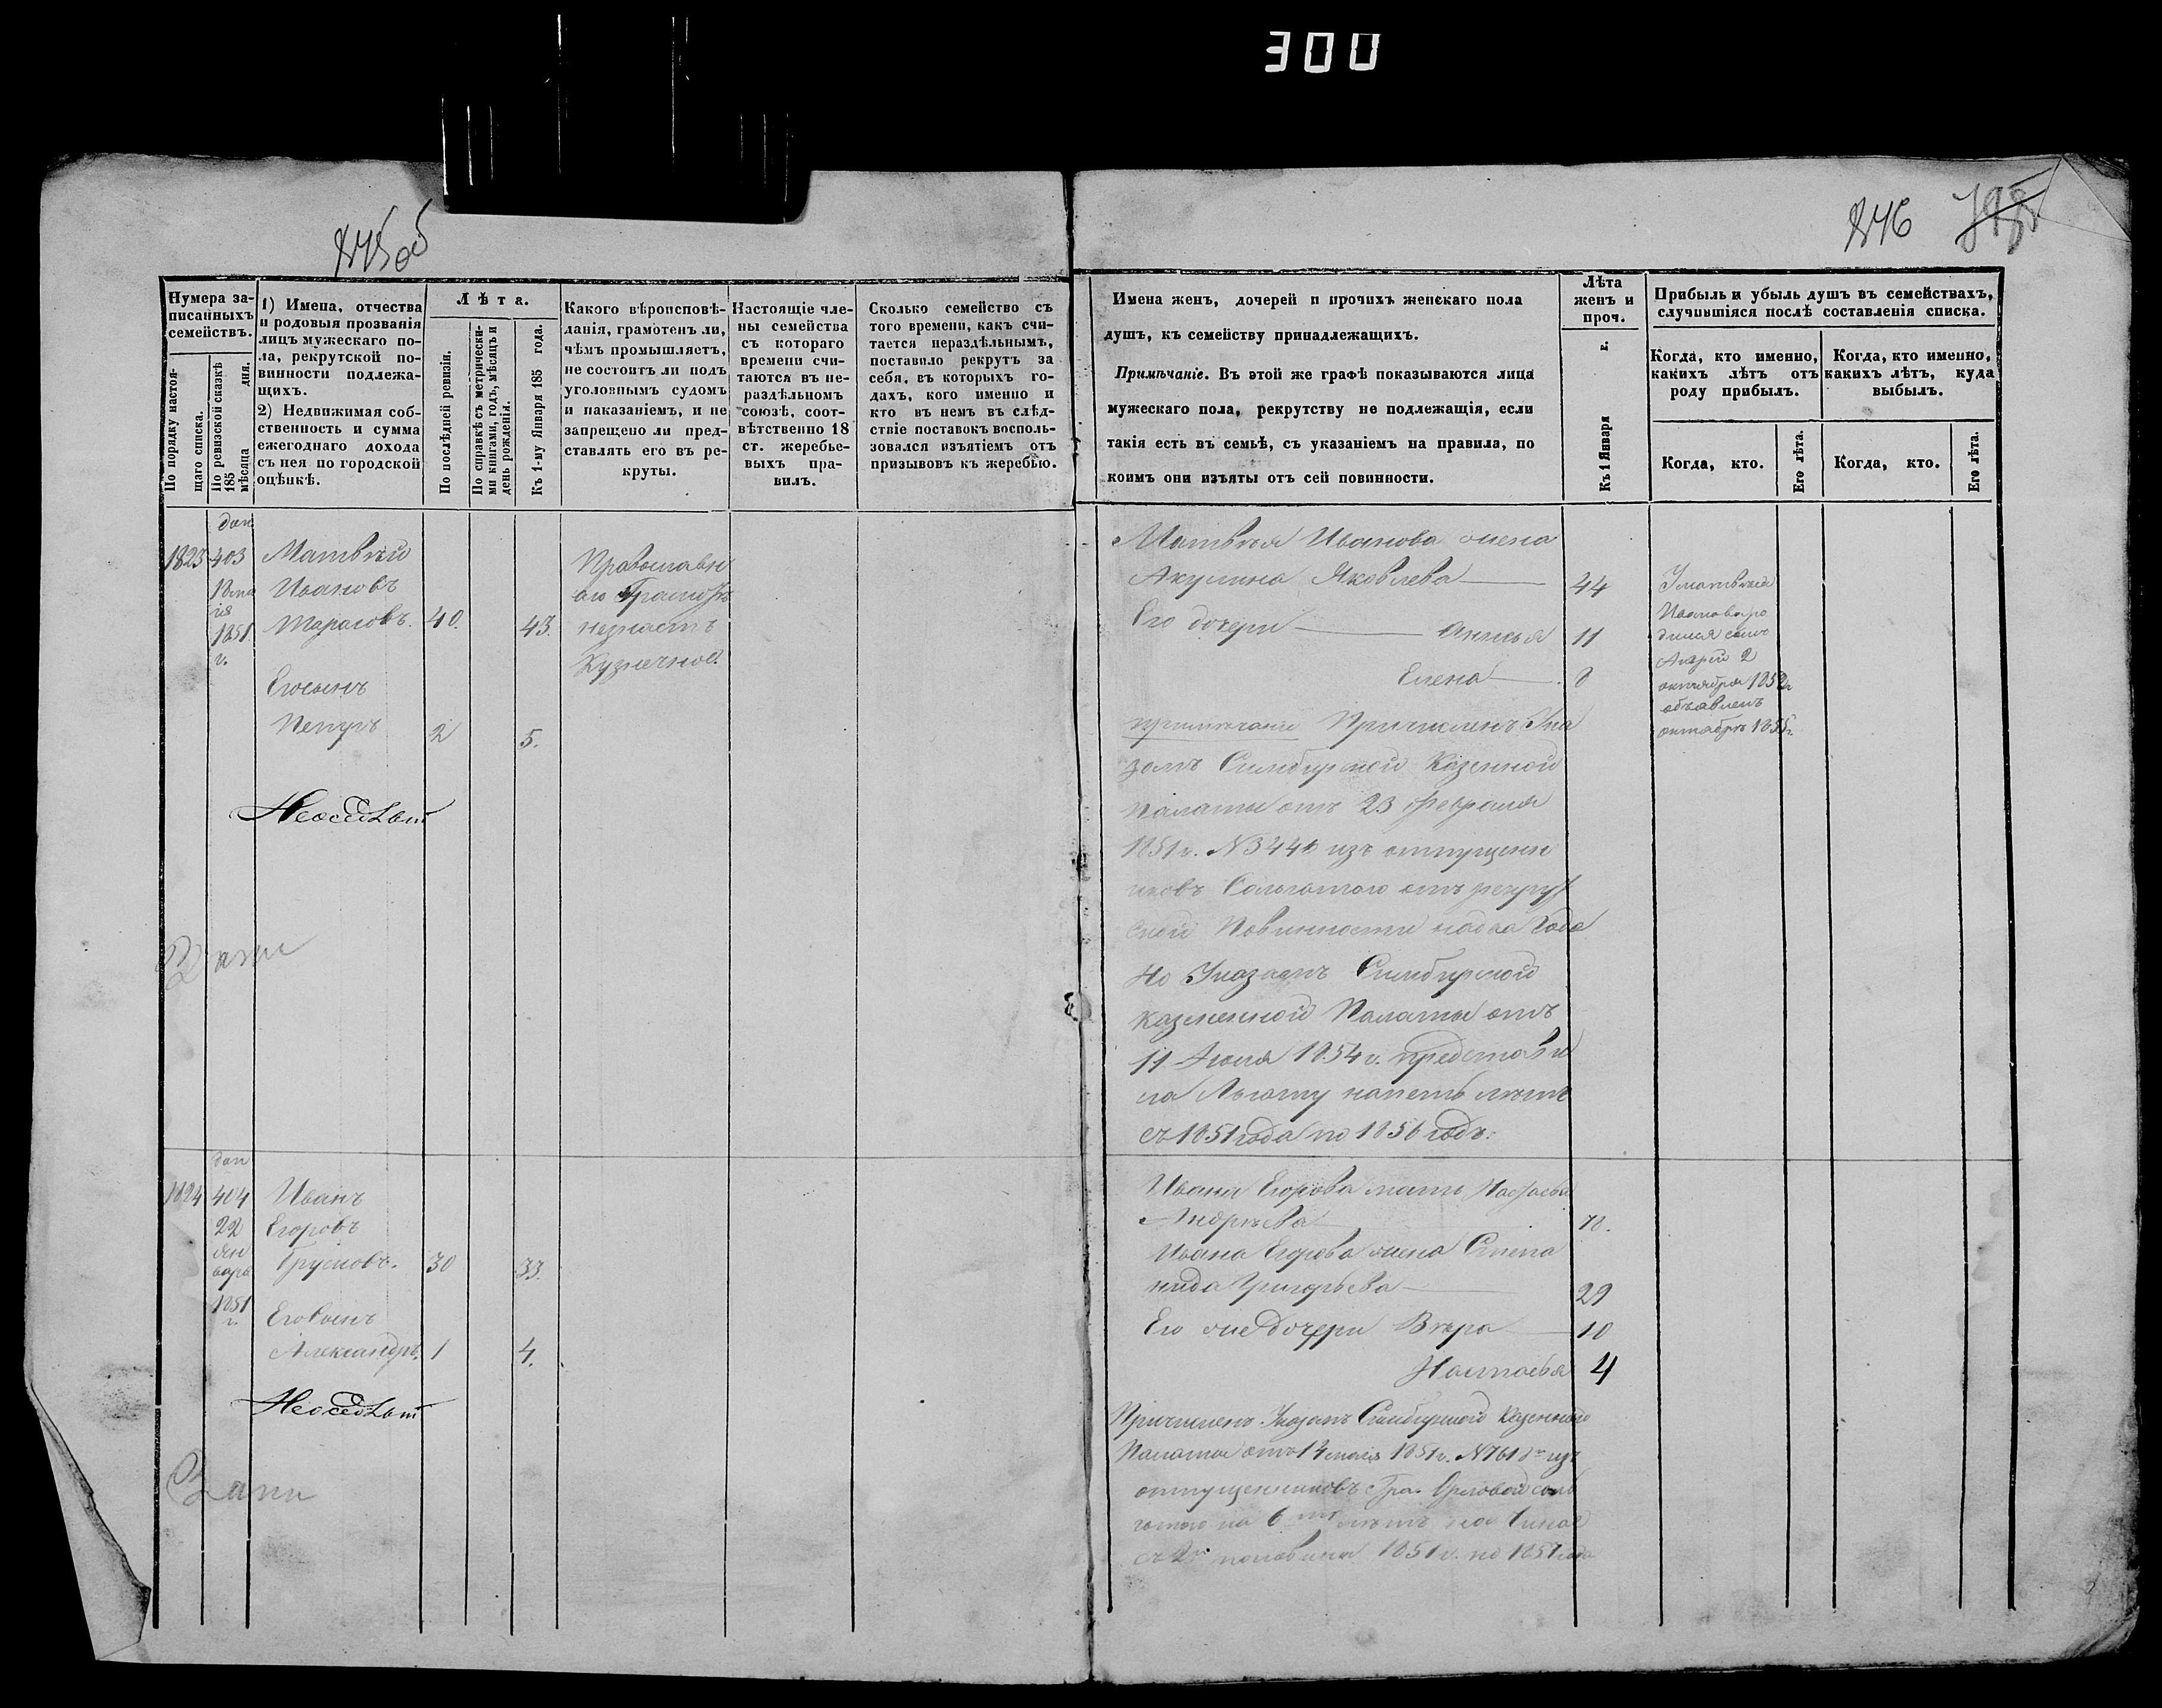 300
845об
846 798
Нумера за-
писанныхъ
семействъ.
По порядку настоя-
щаго списка.
По ревизской сказкѣ
185 мѣсяца дня.
1) Имена, отчества
и родовыя прозванія
лицъ мужескаго по-
ла, рекрутской по-
винности подлежа-
щихъ.
2) Недвижимая соб-
ственность и сумма
ежегоднаго дохода
съ нея по городской
оцѣнкѣ.
Лѣта.
По послѣдней ревизіи.
По справкѣ съ метрически-
ми книгами, годъ, мѣсяцъ и
день рожденія.
Къ 1-му Января 185 года.
Какого вѣроисповѣ-
данія, грамотенъ ли,
чѣмъ промышляетъ,
не состоитъ ли подъ
уголовнымъ судомъ
и наказаніемъ, и не
запрещено ли пред-
ставлять его въ ре-
круты.
Настоящіе чле-
ны семейства
съ котораго
времени счи-
таются въ не-
раздѣльномъ
союзѣ, соот-
вѣтственно 18
ст. жеребье-
выхъ пра-
вилъ.
Сколько семейство съ
того времени, какъ счи-
тается нераздѣльнымъ,
поставило рекрутъ за
себя, въ которыхъ го-
дахъ, кого именно и
кто въ немъ въ слѣд-
ствіе поставокъ восполь-
зовался изъятіемъ отъ
призывовъ къ жеребью.
Имена женъ, дочерей и прочихъ женскаго пола
душъ, къ семейству принадлежащихъ.
Примѣчаніе. Въ этой же графѣ показываются лица
мужескаго пола, рекрутству не подлежащія, если
такія есть въ семьѣ, съ указаніемъ на правила, по
коимъ они изъяты отъ сей повинности.
Лѣта
женъ и
проч.
Къ 1 Января г.
Прибыль и убыль душъ въ семействахъ,
случившіяся послѣ составленія списка.
Когда, кто именно,
какихъ лѣтъ отъ
роду прибылъ.
Когда, кто именно,
какихъ лѣтъ, куда
выбылъ.
Когда, кто.
Его лѣта.
Когда, кто.
Его лѣта.
доп
1823 403 Матвѣй
Ивановъ
1851 Тарасовъ. 40. 43.
г.
Его сынъ
Петръ 2 5.
Православн
аго Грамотѣ
незнаетъ
Кузнечное.
Матвѣя Иванова жена
Акулина Яковлева 44
Его дочери Анисья 11
Елена 8
примѣчаніе Причисленъ Ука
зомъ Симбирской Казенной
Палаты отъ 23 февраля
1851 г. № 344 изъ отпущенн
иковъ Сольготою отъ рекрут
ской Повинности на два Года
Но Указомъ Симбирской
казенной Палаты отъ
11 Июля 1854 г. представле
на Льготу на пять лѣтъ
съ 1851 года по 1856 годъ.
У Матвѣя
Иванова ро
дился сынъ
Андрей 2
октября 1852 г.
объявленъ
октября 1855 г.
доп
1824 404 Иванъ
22 Егоровъ
Ян
варя Грусновъ. 30 33.
1851
г. Его сынъ
Александръ. 1 4.
Ивана Егорова мать
Андрѣева 70.
Ивана Егорова жена Степа
нида Григорьева 29
Его же дочери Вѣра 10
Настасья 4
Причисленъ Указомъ Симбирской Казенной
Палаты отъ 1851 г. изъ
отпущенниковъ Гра. Орловой соль
готою на 6 лѣтъ
съ 2й половины 1851 г. по 1857 года